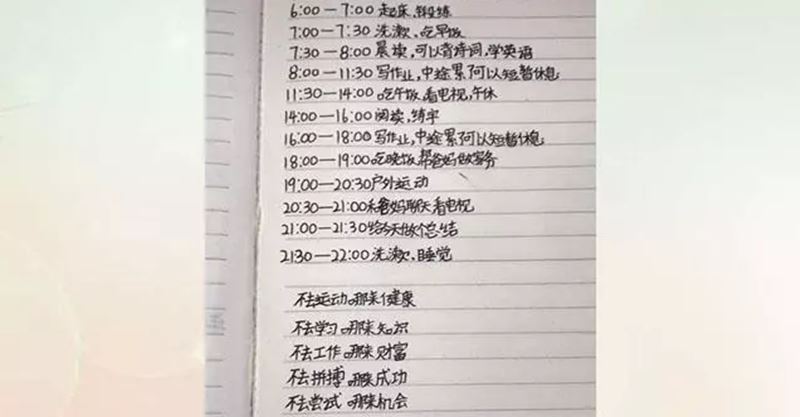 6:00—7:00 起床,锻练
7:00—7:30 洗漱,吃早饭
7:30—8:00 晨读,可以背诗词,学英语
8:00—11:30 写作业,中途累了可以短暂休息
11:30—14:00 吃午饭,看电视,午休
14:00—16:00 阅读,练字
16:00—18:00 写作业,中途累了可以短暂休息
18:00—19:00 吃晚饭,帮爸妈做家务
19:00—20:30 户外运动
20:30—21:00 和爸妈聊天看电视
21:00—21:30 给今天做个总结
2130—22:00 洗漱,睡觉
不去运动哪来健康
不去学习哪来知识
不去工作哪来财富
不去拼搏哪来成功
不去尝试哪来机会